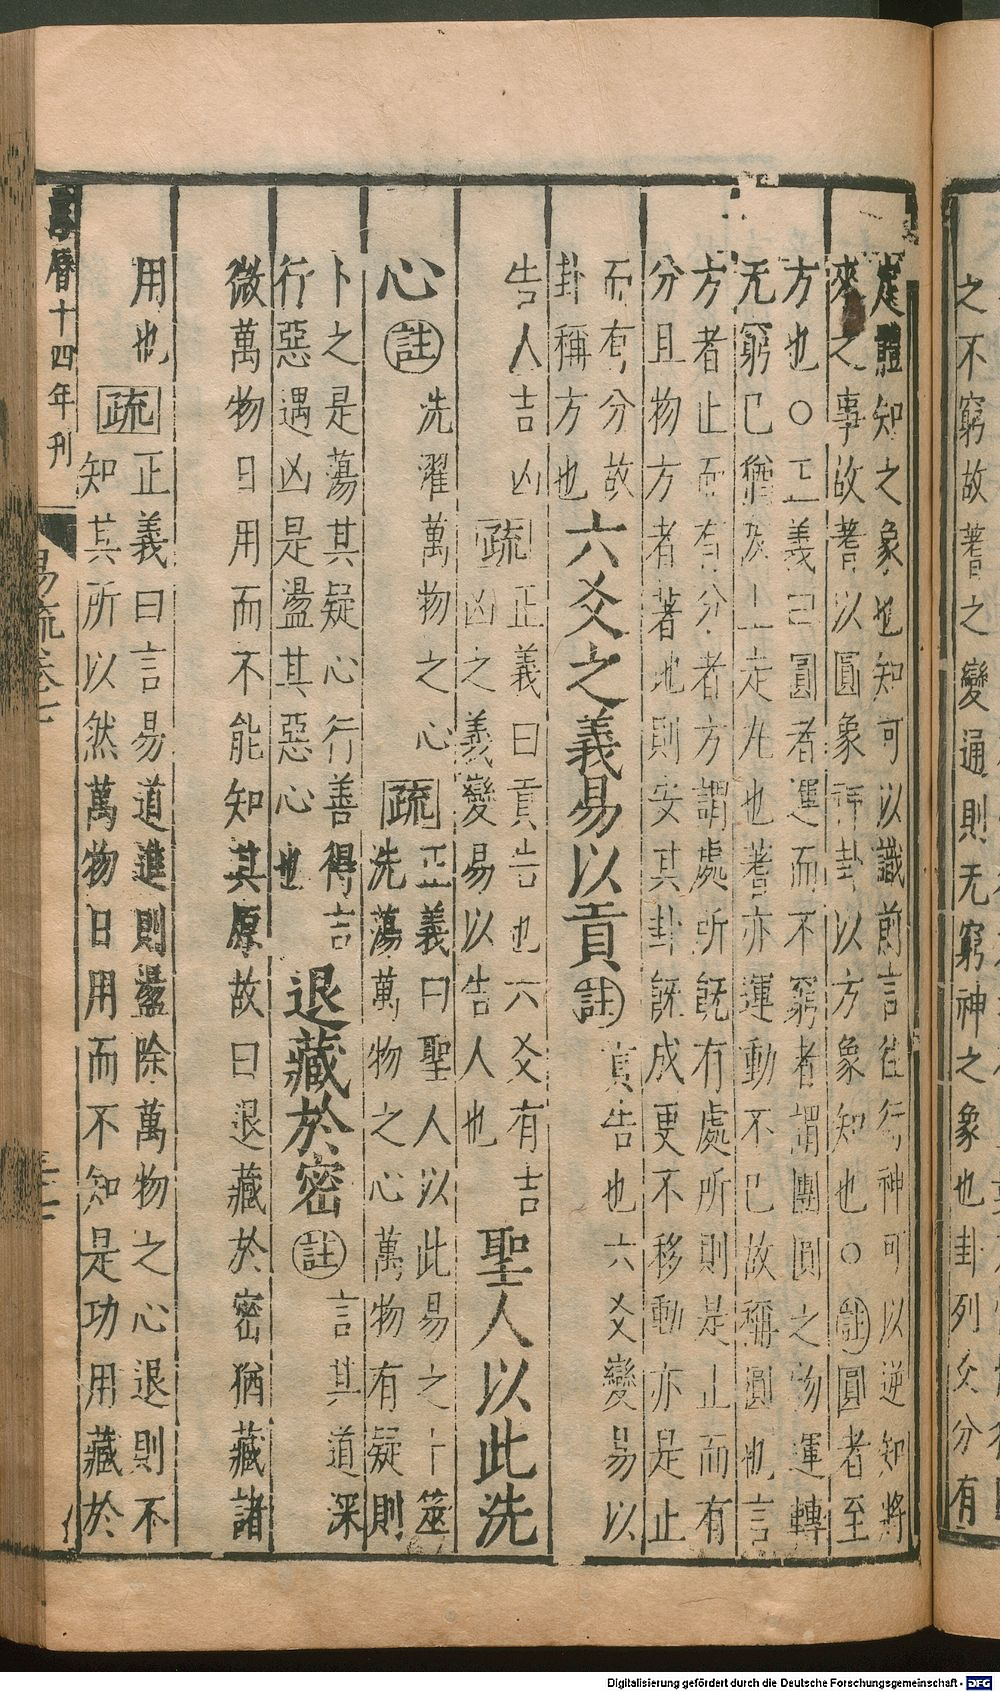 之不窮故蓍之變通則无窮神之象也卦列爻分有
定體知之象也知可以識前言往行神可以逆知將
來之事故蓍以圓象神卦以方象知也○註圓者至
方也○正義曰圓者運而不窮者謂團圓之物運轉
无窮已猶阪上走丸也蓍亦運動不已故稱圓也言
方者止而有分者方謂處所既有處所則是止而有
分且物方者著地則安其卦既成更不移動亦是止
而有分故
卦稱方也
六爻之義易以貢
註
貢告也六爻變易以
告人吉凶
疏
正義曰貢告也六爻有吉
凶之義變易以告人也
聖人以此洗
心
註
洗濯萬物之心
疏
正義曰聖人以此易之卜筮
洗蕩萬物之心萬物有疑則
卜之是蕩其疑心行善得吉
行惡遇凶是盪其惡心也
退藏於密
註
言其道深
微萬物日用而不能知其原故曰退藏於密猶藏諸
用也
疏
正義曰言易道進則盪除萬物之心退則不
知其所以然萬物日用而不知是功用藏於
曆十四年刊
易疏卷七
Digitalisierung gefördert durch die Deutsche Forschungsgemeinschaft - DFG